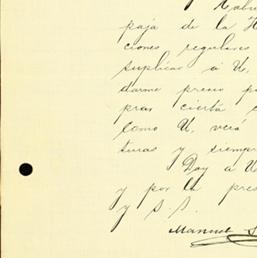 paja de la H
ciones regulares
suplicar á U.
darme precio p
prar cierta c
como U. verá
turas y siempr
Doy á U
y por la pres
y S. S.
Manuel S